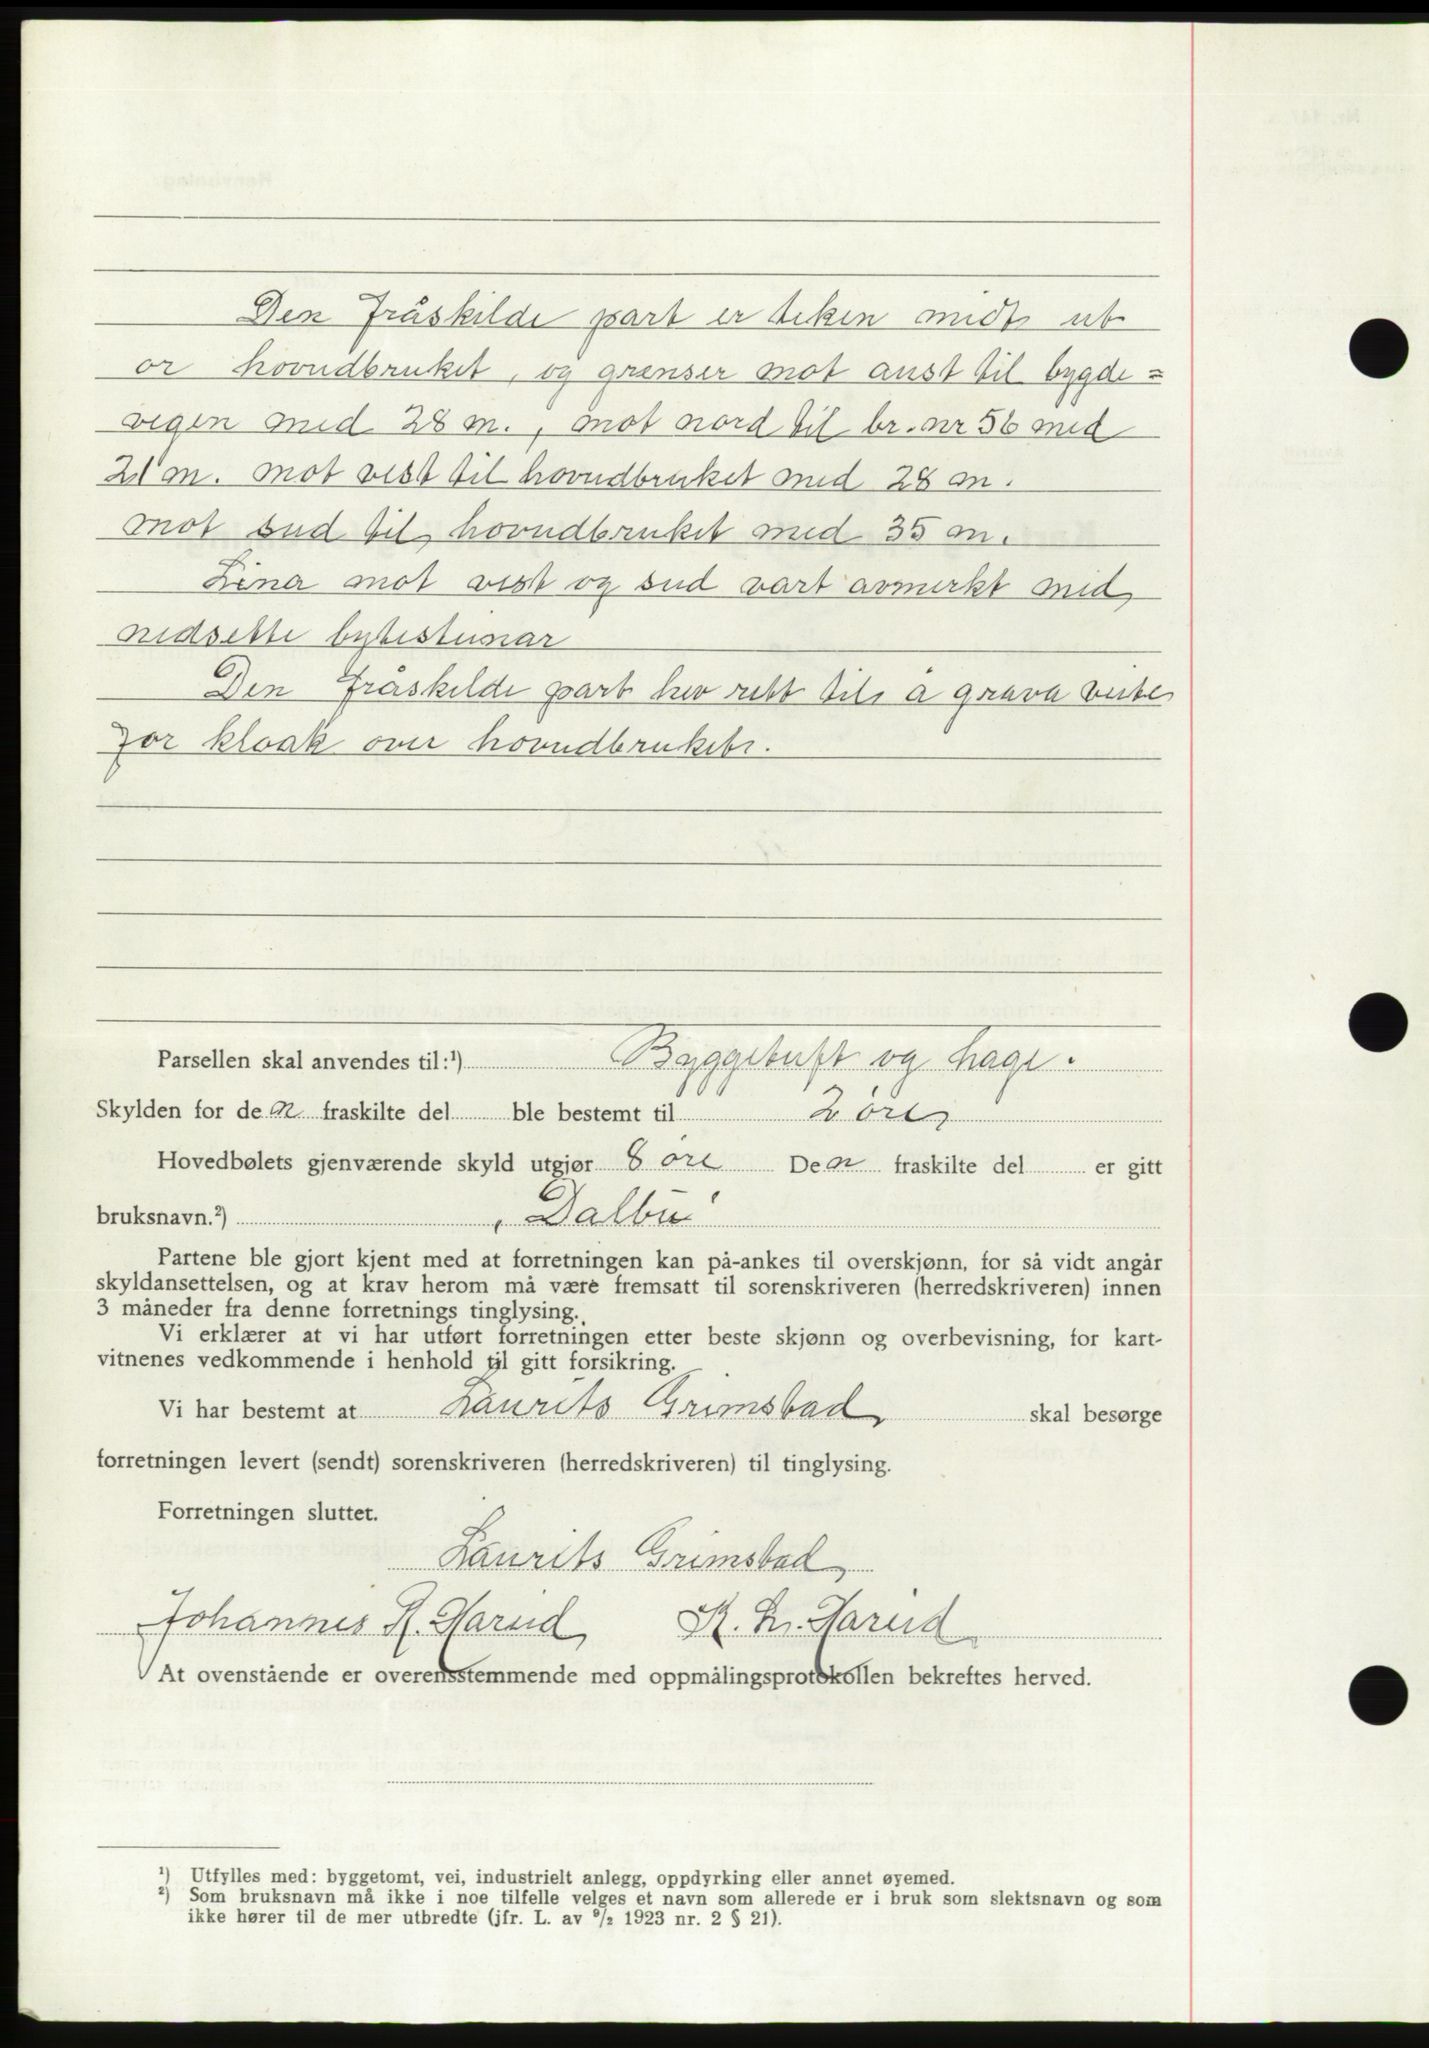 Den fråskilde part er teken midt ut
or hovudbruket, og grenser mot aust til bygde=
vegen med 28 m., mot nord til br. nr 56 med
21 m. mot vest til hovudbruket med 28 m.
mot sud til hovudbruket med 35 m.
Lina mot vest og sud vart avmerkt med
nedsette bytesteinar
Den fråskilde part hev rett til å grava veite
for kloak over hovudbruket.
Parsellen skal anvendes til:¹) Byggetuft og hage.
Skylden for den fraskilte del ble bestemt til 2 øre
Hovedbølets gjenværende skyld utgjør 8 øre Den fraskilte del er gitt
bruksnavn.²) „Dalbu"
Partene ble gjort kjent med at forretningen kan på-ankes til overskjønn, for så vidt angår
skyldansettelsen, og at krav herom må være fremsatt til sorenskriveren (herredskriveren) innen
3 måneder fra denne forretnings tinglysing.
Vi erklærer at vi har utført forretningen etter beste skjønn og overbevisning, for kart-
vitnenes vedkommende i henhold til gitt forsikring.
Vi har bestemt at Laurits Grimstad skal besørge
forretningen levert (sendt) sorenskriveren (herredskriveren) til tinglysing.
Forretningen sluttet.
Laurits Grimstad
Johannes R. Hareid K. L. Hareid
At ovenstående er overensstemmende med oppmålingsprotokollen bekreftes herved.
¹) Utfylles med: byggetomt, vei, industrielt anlegg, oppdyrking eller annet øyemed.
²) Som bruksnavn må ikke i noe tilfelle velges et navn som allerede er i bruk som slektsnavn og som
ikke hører til de mer utbredte (jfr. L. av ⁹/₂ 1923 nr. 2 § 21).